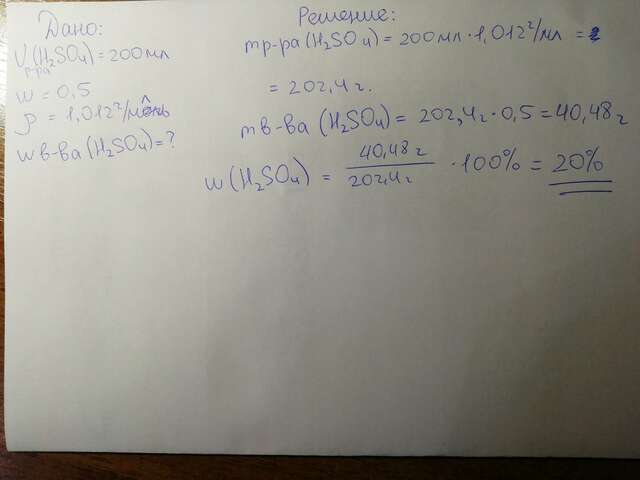 Дано:
Vр-ра(H₂SO₄) = 200 мл
w = 0,5
ρ = 1,012 г/мл
w в-ва (H₂SO₄) = ?
Решение:
mр-ра (H₂SO₄) = 200 мл · 1,012 г/мл =
= 202,4 г.
mв-ва (H₂SO₄) = 202,4 г · 0,5 = 40,48 г
w (H₂SO₄) = 40,48 г / 202,4 г · 100% = 20%